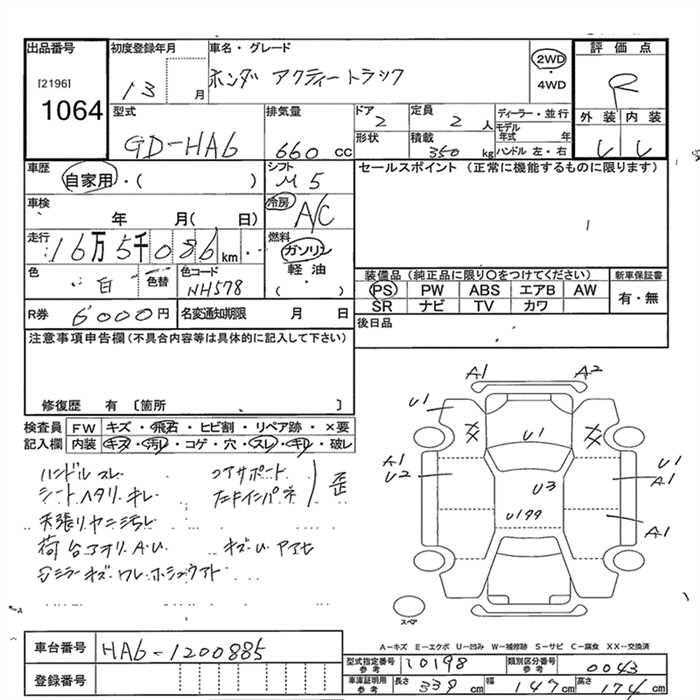 出品番号
[2196]
1064
初度登録年月
13 月
車名・グレード
ホンダ アクティートラック
2WD
・
4WD
評価点
R
外装 内装
U U
型式
GD-HA6
排気量
660 cc
ドア
2
定員
2 人
形状
積載
350 kg
ディーラー・並行
モデル年式 年
ハンドル 左・右
車歴
自家用・( )
シフト
M5
セールスポイント (正常に機能するものに限ります)
車検
年 月( 日)
冷房
A/C
走行
16万5千086 km
燃料
ガソリン
軽油
( )
色
白
色替
色コード
NH578
装備品 (純正品に限り○をつけてください)
PS PW ABS エアB AW
SR ナビ TV カワ
新車保証書
有・無
R券
6000円
名変通知期限 月 日
後日品
注意事項申告欄(不具合内容等は具体的に記入して下さい)
修復歴 有 〔箇所 〕
検査員
記入欄
FW キズ・飛石・ヒビ割・リペア跡・×要
内装 キズ・汚レ・コゲ・穴・スレ・キレ・破レ
ハンドルスレ
シートヘタリ.キレ
天張リヤニ汚レ
荷台アオリA.U
コアサポート
歪
A1
A2
U1
XX
XX
U1
A1
U2
U3
U199
U1
A1
A1
スペア
A-キズ E-エクボ U-凹み W-補修跡 S-サビ C-腐食 XX-交換済
車台番号
HA6-1200885
登録番号
型式指定番号
参考
10198
類別区分番号
参考
0043
車庫証明用
参考
長さ 339 cm
幅 147 cm
高さ 174 cm